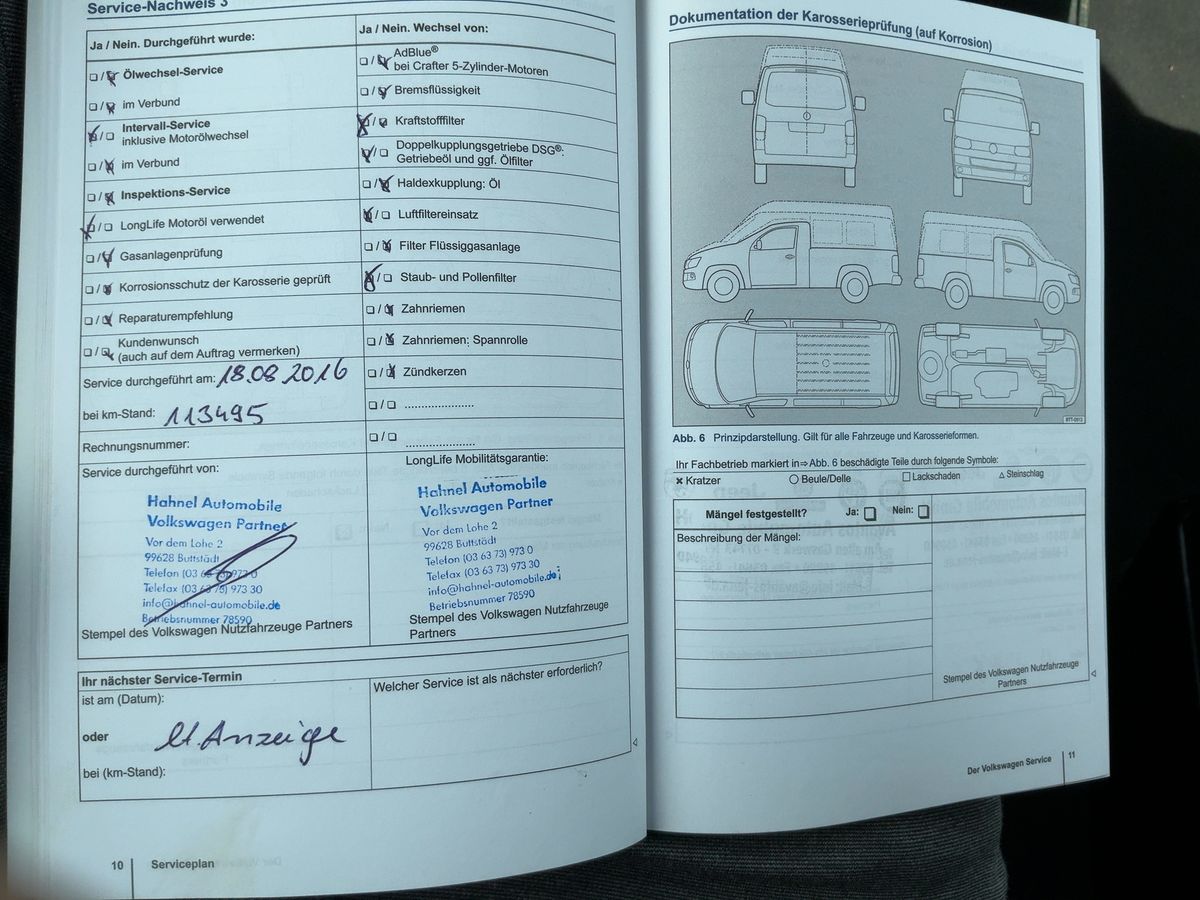 Service-Nachweis 3
Ja / Nein. Durchgeführt wurde:
Ölwechsel-Service
im Verbund
Intervall-Service
inklusive Motorölwechsel
im Verbund
Inspektions-Service
LongLife Motoröl verwendet
Gasanlagenprüfung
Korrosionsschutz der Karosserie geprüft
Reparaturempfehlung
Kundenwunsch
(auch auf dem Auftrag vermerken)
Service durchgeführt am: 18.08.2016
bei km-Stand: 113495
Rechnungsnummer:
Service durchgeführt von:
Hahnel Automobile
Volkswagen Partner
Vor dem Lohe 2
99628 Buttstädt
Telefon (03 63 73) 973 0
Telefax (03 63 73) 973 30
info@hahnel-automobile.de
Betriebsnummer 78590
Stempel des Volkswagen Nutzfahrzeuge Partners
Ja / Nein. Wechsel von:
AdBlue®
bei Crafter 5-Zylinder-Motoren
Bremsflüssigkeit
Kraftstofffilter
Doppelkupplungsgetriebe DSG®:
Getriebeöl und ggf. Ölfilter
Haldexkupplung: Öl
Luftfiltereinsatz
Filter Flüssiggasanlage
Staub- und Pollenfilter
Zahnriemen
Zahnriemen: Spannrolle
Zündkerzen
LongLife Mobilitätsgarantie:
Hahnel Automobile
Volkswagen Partner
Vor dem Lohe 2
99628 Buttstädt
Telefon (03 63 73) 973 0
Telefax (03 63 73) 973 30
info@hahnel-automobile.de
Betriebsnummer 78590
Stempel des Volkswagen Nutzfahrzeuge
Partners
Ihr nächster Service-Termin
ist am (Datum):
oder
lt. Anzeige
bei (km-Stand):
Welcher Service ist als nächster erforderlich?
10 Serviceplan
Dokumentation der Karosserieprüfung (auf Korrosion)
Abb. 6 Prinzipdarstellung. Gilt für alle Fahrzeuge und Karosserieformen.
Ihr Fachbetrieb markiert in ⇒ Abb. 6 beschädigte Teile durch folgende Symbole:
Kratzer
Beule/Delle
Lackschaden
Steinschlag
Mängel festgestellt? Ja: Nein:
Beschreibung der Mängel:
Stempel des Volkswagen Nutzfahrzeuge
Partners
Der Volkswagen Service 11